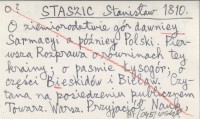 STASZIC Stanisław 1810.
O ziemiorodztwie gór dawniej
Sarmacji a później Polski. Pier-
wsza Rozprawa o równinach tej
krainy; o paśmie Łysogór; o
części Bieskidów i Bielaw. Czy-
tana na posiedzeniu publicznem
Towarz. Warsz. Przyjaciół Nauk,